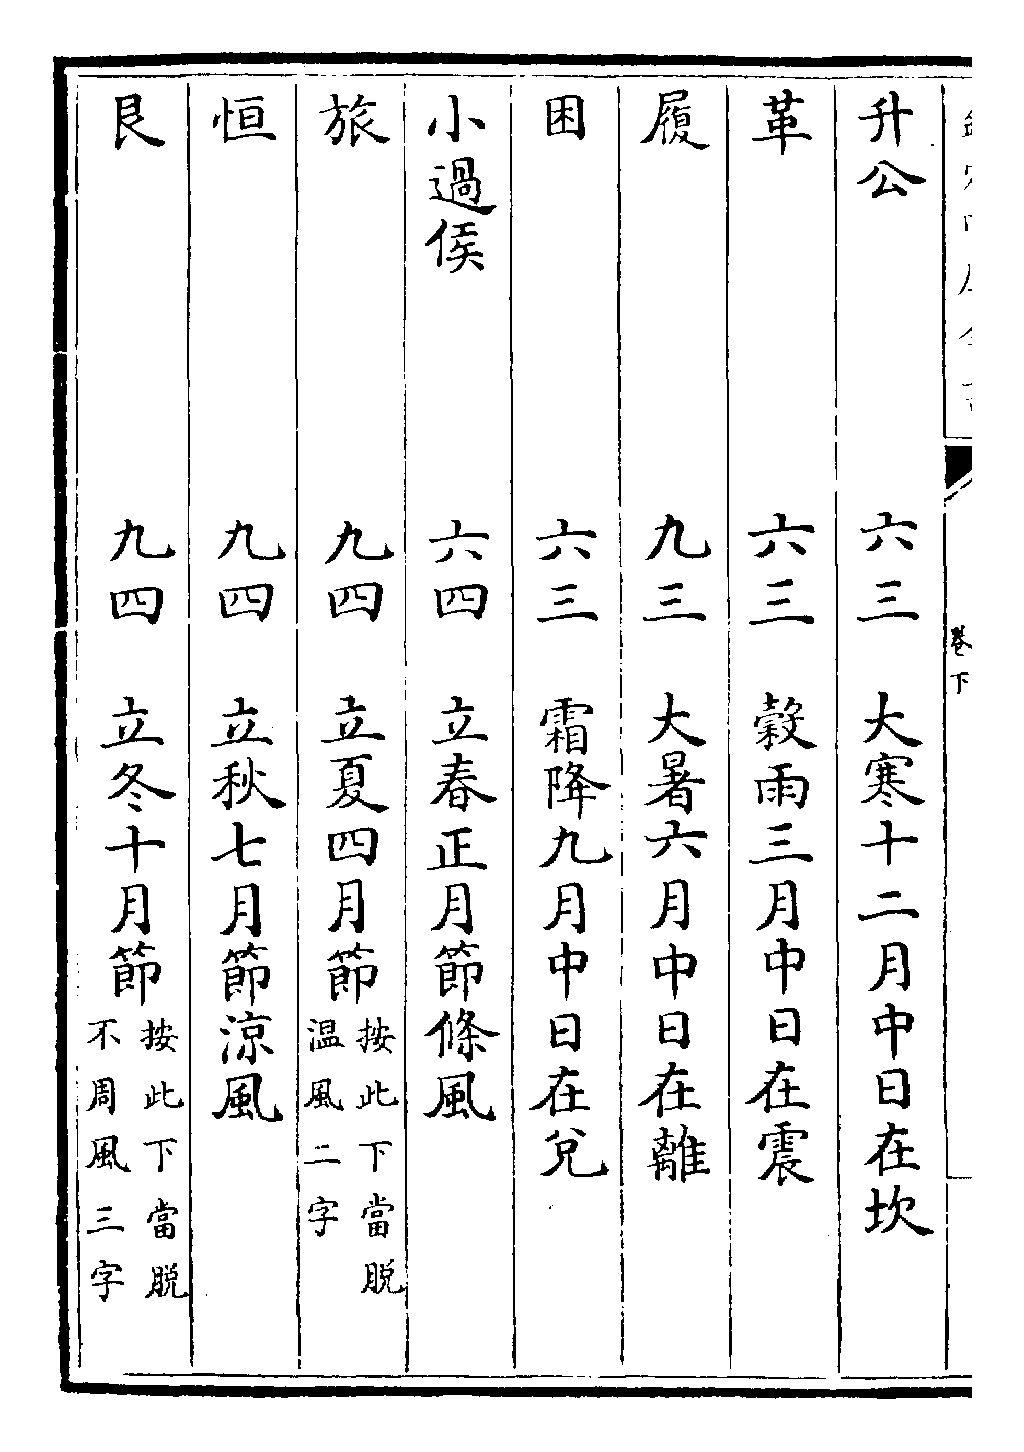 卷下
升公　六三　大寒十二月中日在坎
革　六三　穀雨三月中日在震
履　九三　大暑六月中日在離
困　六三　霜降九月中日在兌
小過侯　六四　立春正月節條風
旅　九四　立夏四月節按此下當脱
温風二字
恒　九四　立秋七月節涼風
艮　九四　立冬十月節按此下當脱
不周風三字